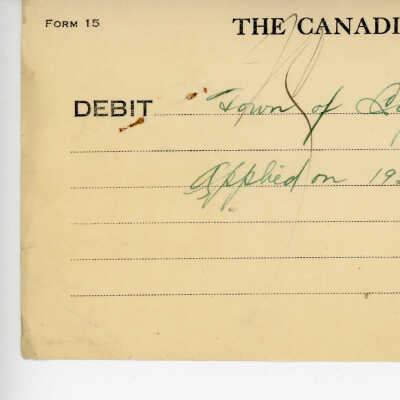 FORM 15
THE CANADI
DEBIT Town of
Applied on 19